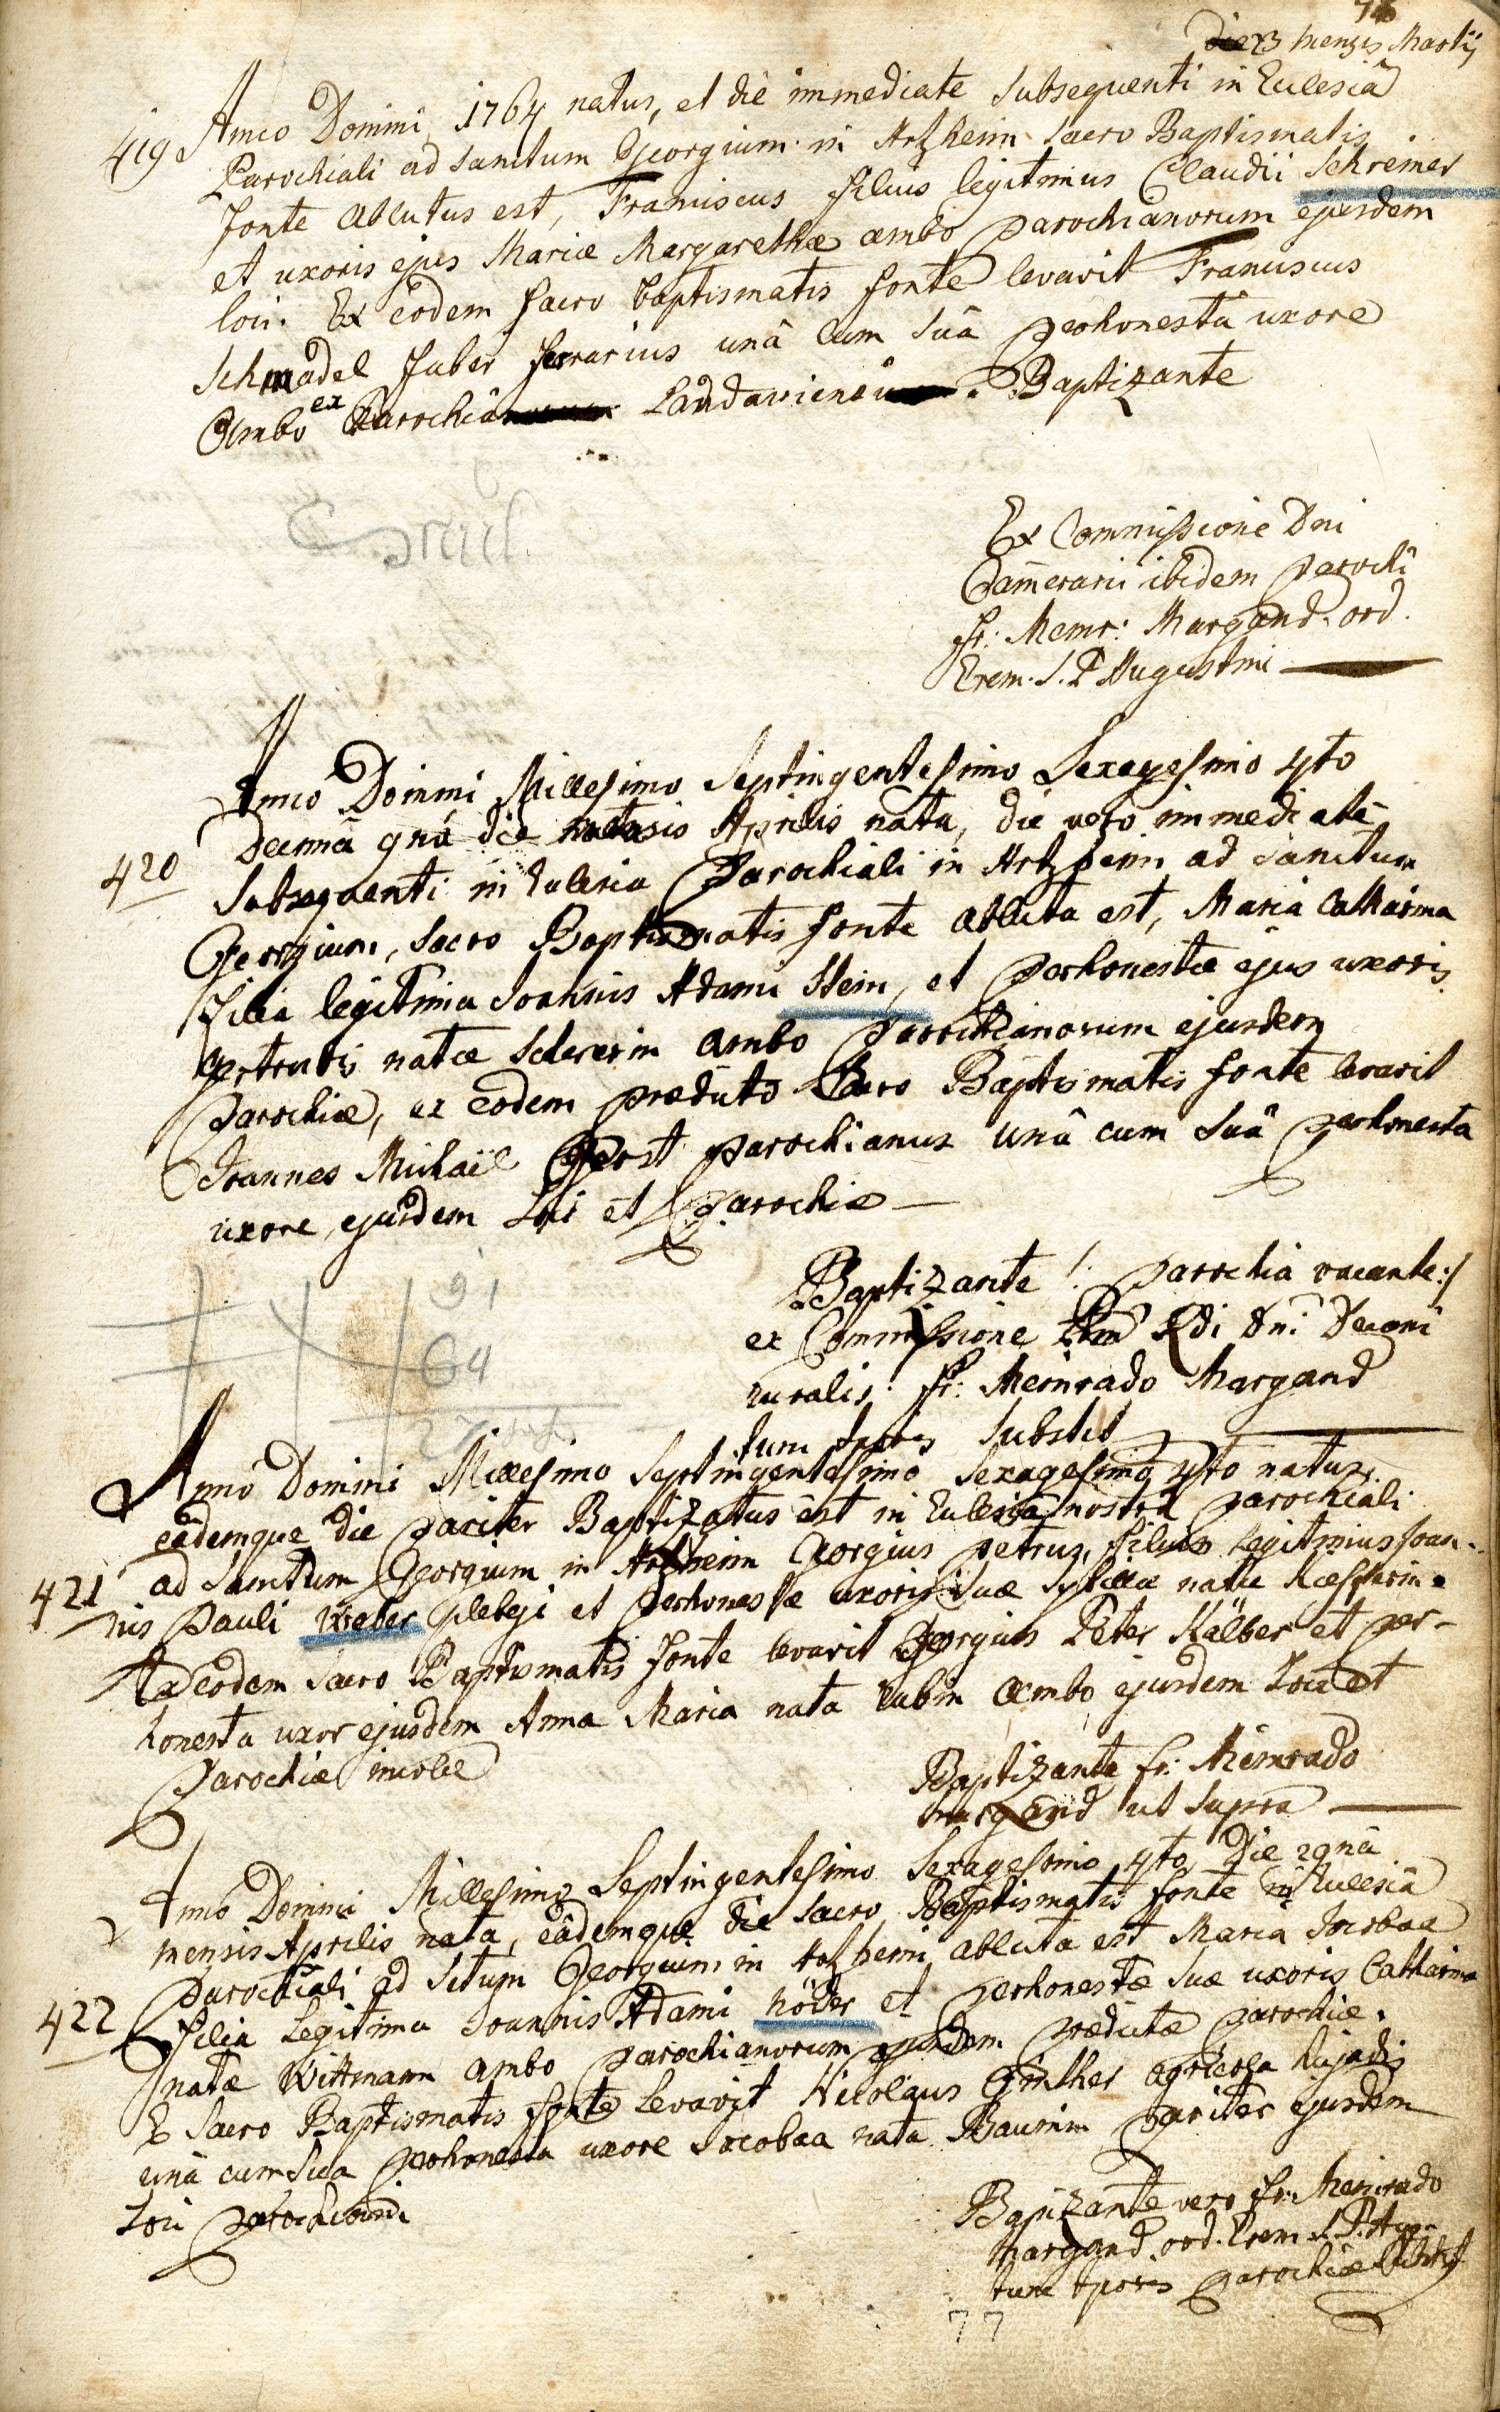 76
die 23 mensis Martij
419 Anno Domini 1764 natus, et die immediate subsequenti in Ecclesiâ
Parochiali ad sanctum Georgium in Artzheim sacro Baptismatis
fonte ablutus est, Franciscus filius legitimus Claudii Schreiner
et uxoris ejus Mariæ Margarethæ ambo parochianorum ejusdem
loci. Ex eodem sacro baptismatis fonte levavit Franciscus
Schmadel faber ferrarius unâ cum suâ perhonestâ uxore
Ambo ex Parochiâ Landaviensi. Baptizante
Ex Commissione Dni
Camerarii ibidem parochi
fr: Meinr: Margand. ord.
Erem. S. P Augustini
Anno Domini Millesimo Septingentesimo Sexagesimo 4to
Decimâ qnâ die mensis Aprilis nata, die vero immediatè
420 subsequenti in Eclesia Parochiali in Artzheim ad sanctum
Georgium, sacro Baptismatis fonte abluta est, Maria Catharina
filia legitima Joannis Adami Stein, et perhonestæ ejus uxoris
gertrudis natæ ambo parochianorum ejusdem
parochiæ, ex eodem prædicto sacro Baptismatis fonte levavit
Joannes Michaël Gerst parochianus unâ cum suâ perhonesta
uxore ejusdem loci et parochiæ
Baptizante /: parochia vacante:/
ex Commissione Rdi Dni Decani
ruralis: fr: Meinrado Margand
tum substit
91
64
27
Anno Domini Millesimo Septingentesimo Sexagesimo 4to natus,
eâdemque die pariter Baptizatus est in Eclesiâ nostrâ parochiali
421 ad sanctum Georgium in Artzheim Georgius petrus, filius legitimus Joan-
nis Pauli Weber plebeji et perhonestæ uxoris suæ Sybillæ natæ
Ex eodem sacro Baptismatis fonte levavit Georgius Peter Kälber et per-
honesta uxor ejusdem Anna Maria nata ambo ejusdem loci et
parochiæ incolæ
Baptizante fr: Meinrado
margand ut supra
Anno Domini Millesimo Septingentesimo Sexagesimo 4to Die 29nâ
mensis Aprilis nata, eâdemque die sacro Baptismatis fonte in Eclesiâ
parochiali ad sctum Georgium in Artzheim abluta est Maria Jacobaa
422 filia legitima Joannis Adami Nöder et perhonestæ suæ uxoris Catharina
natæ Wittmann ambo parochianorum ejusdem prædictæ parochiæ.
E sacro Baptismatis fonte levavit Nicolaus Ginther agricola hujatis
unâ cum sua perhonesta uxore Jacobaa nata Baurin pariter ejusdem
loci parochiani
Baptizante vero fr: Meinrado
margand ord. Erem S. P. Aug.
tunc tporis parochiæ
77